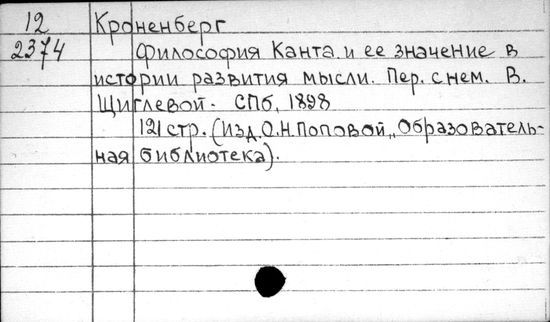 12 Кроненберг
2374 Философия Канта и ее значение в
истории развития мысли. Пер. с нем. В.
Щиглевой. СПб, 1898
121 стр. (Изд. О.Н.Поповой „Образователь-
ная библиотека).